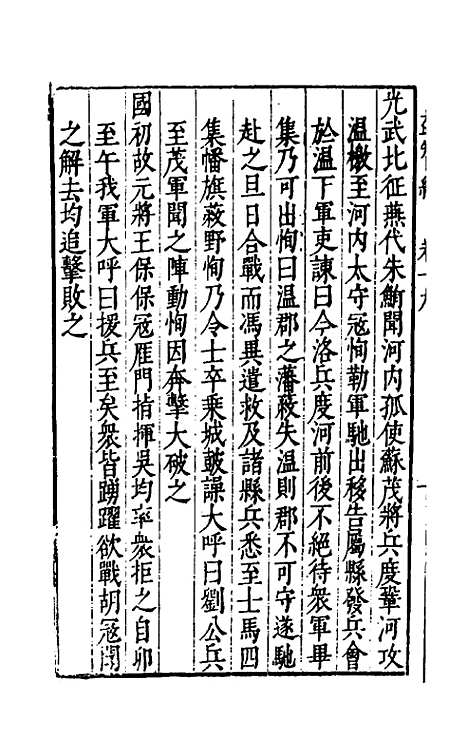 光武比征燕代朱鮪聞河内孤使蘇茂將兵度鞏河攻
温檄至河内太守冦恂勒軍馳出移告屬縣發兵會
於温下軍吏諫曰今洛兵度河前後不絕待衆軍畢
集乃可出恂曰温郡之藩蔽失温則郡不可守遂馳
赴之旦日合戰而馮異遣救及諸縣兵悉至士馬四
集幡旗蔽野恂乃令士卒乗城鼓譟大呼曰劉公兵
至茂軍聞之陣動恂因奔擊大破之
國初故元將王保保冦雁門指揮吳均率衆拒之自卯
至午我軍大呼曰援兵至矣衆皆踴躍欲戰胡冦聞
之解去均追擊敗之